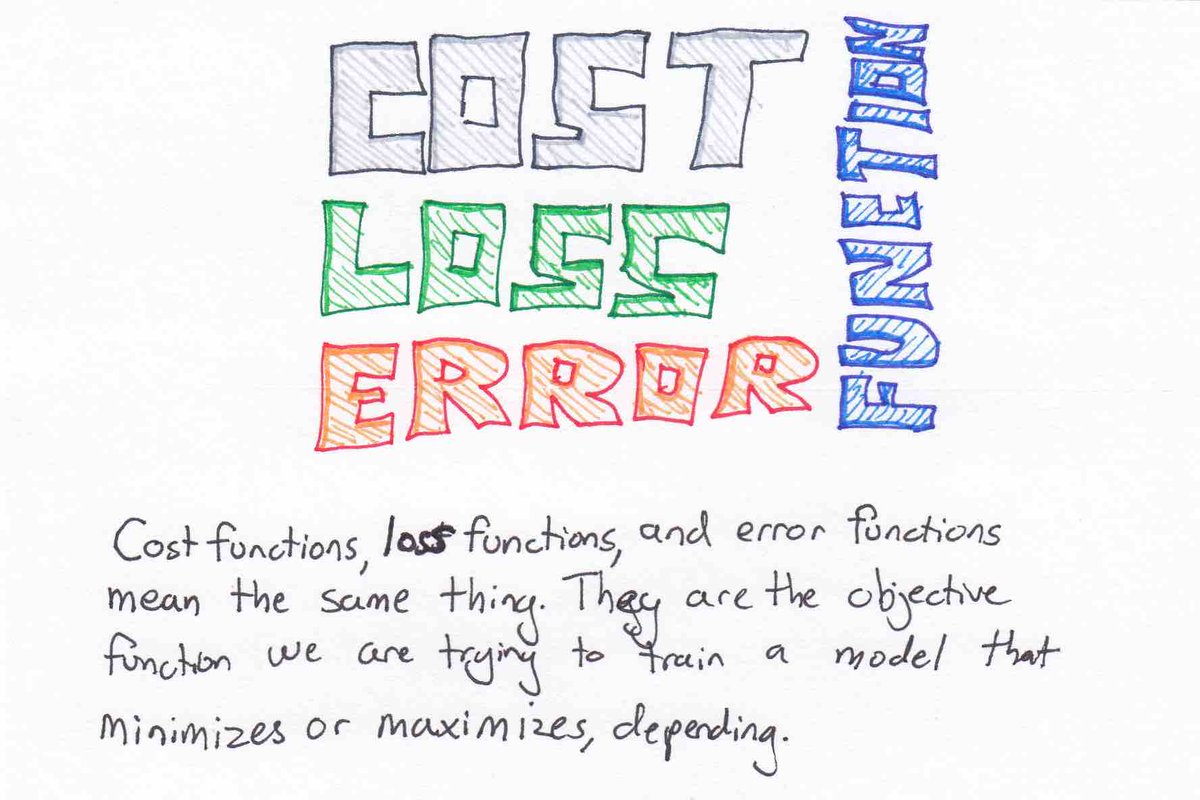 COST
LOSS
ERROR
FUNCTION
Cost functions, loss functions, and error functions
mean the same thing. They are the objective
function we are trying to train a model that
minimizes or maximizes, depending.